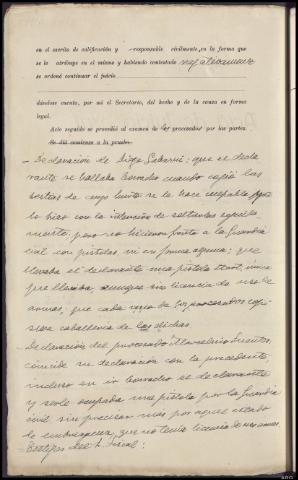 en el escrito de calificación y responsable civilmente, en la forma que
se le atribuye en el mismo y habiendo contestado negativamente
se ordenó continuar el juicio
dándose cuenta, por mí el Secretario, del hecho y de la causa en forma
legal.
Acto seguido se procedió al examen de los procesados por las partes.
Se dió comienzo a la prueba.
Declaración de Diego : que se decla
rante se hallaba borracho cuando cogió las
bestias de cuyo hurto se le hace culpable que
lo hizo con la intención de soltarlas
pero no hicieron frente a la Guardia
civil con pistolas, ni en forma alguna; que
llevaba el declarante una pistola única
que llevaba, aunque sin licencia de uso de
armas, que cada uno de los procesados co
caballería de las dichas.
Declaración del procesado Marcelino
coincide su declaración con la precedente
incluso en ir borracho el declarante
y serle ocupada una pistola por la Guardia
civil sin precisar más por aquel estado
de embriaguez, que no tenía licencia de uso armas
Testigos del Fiscal: